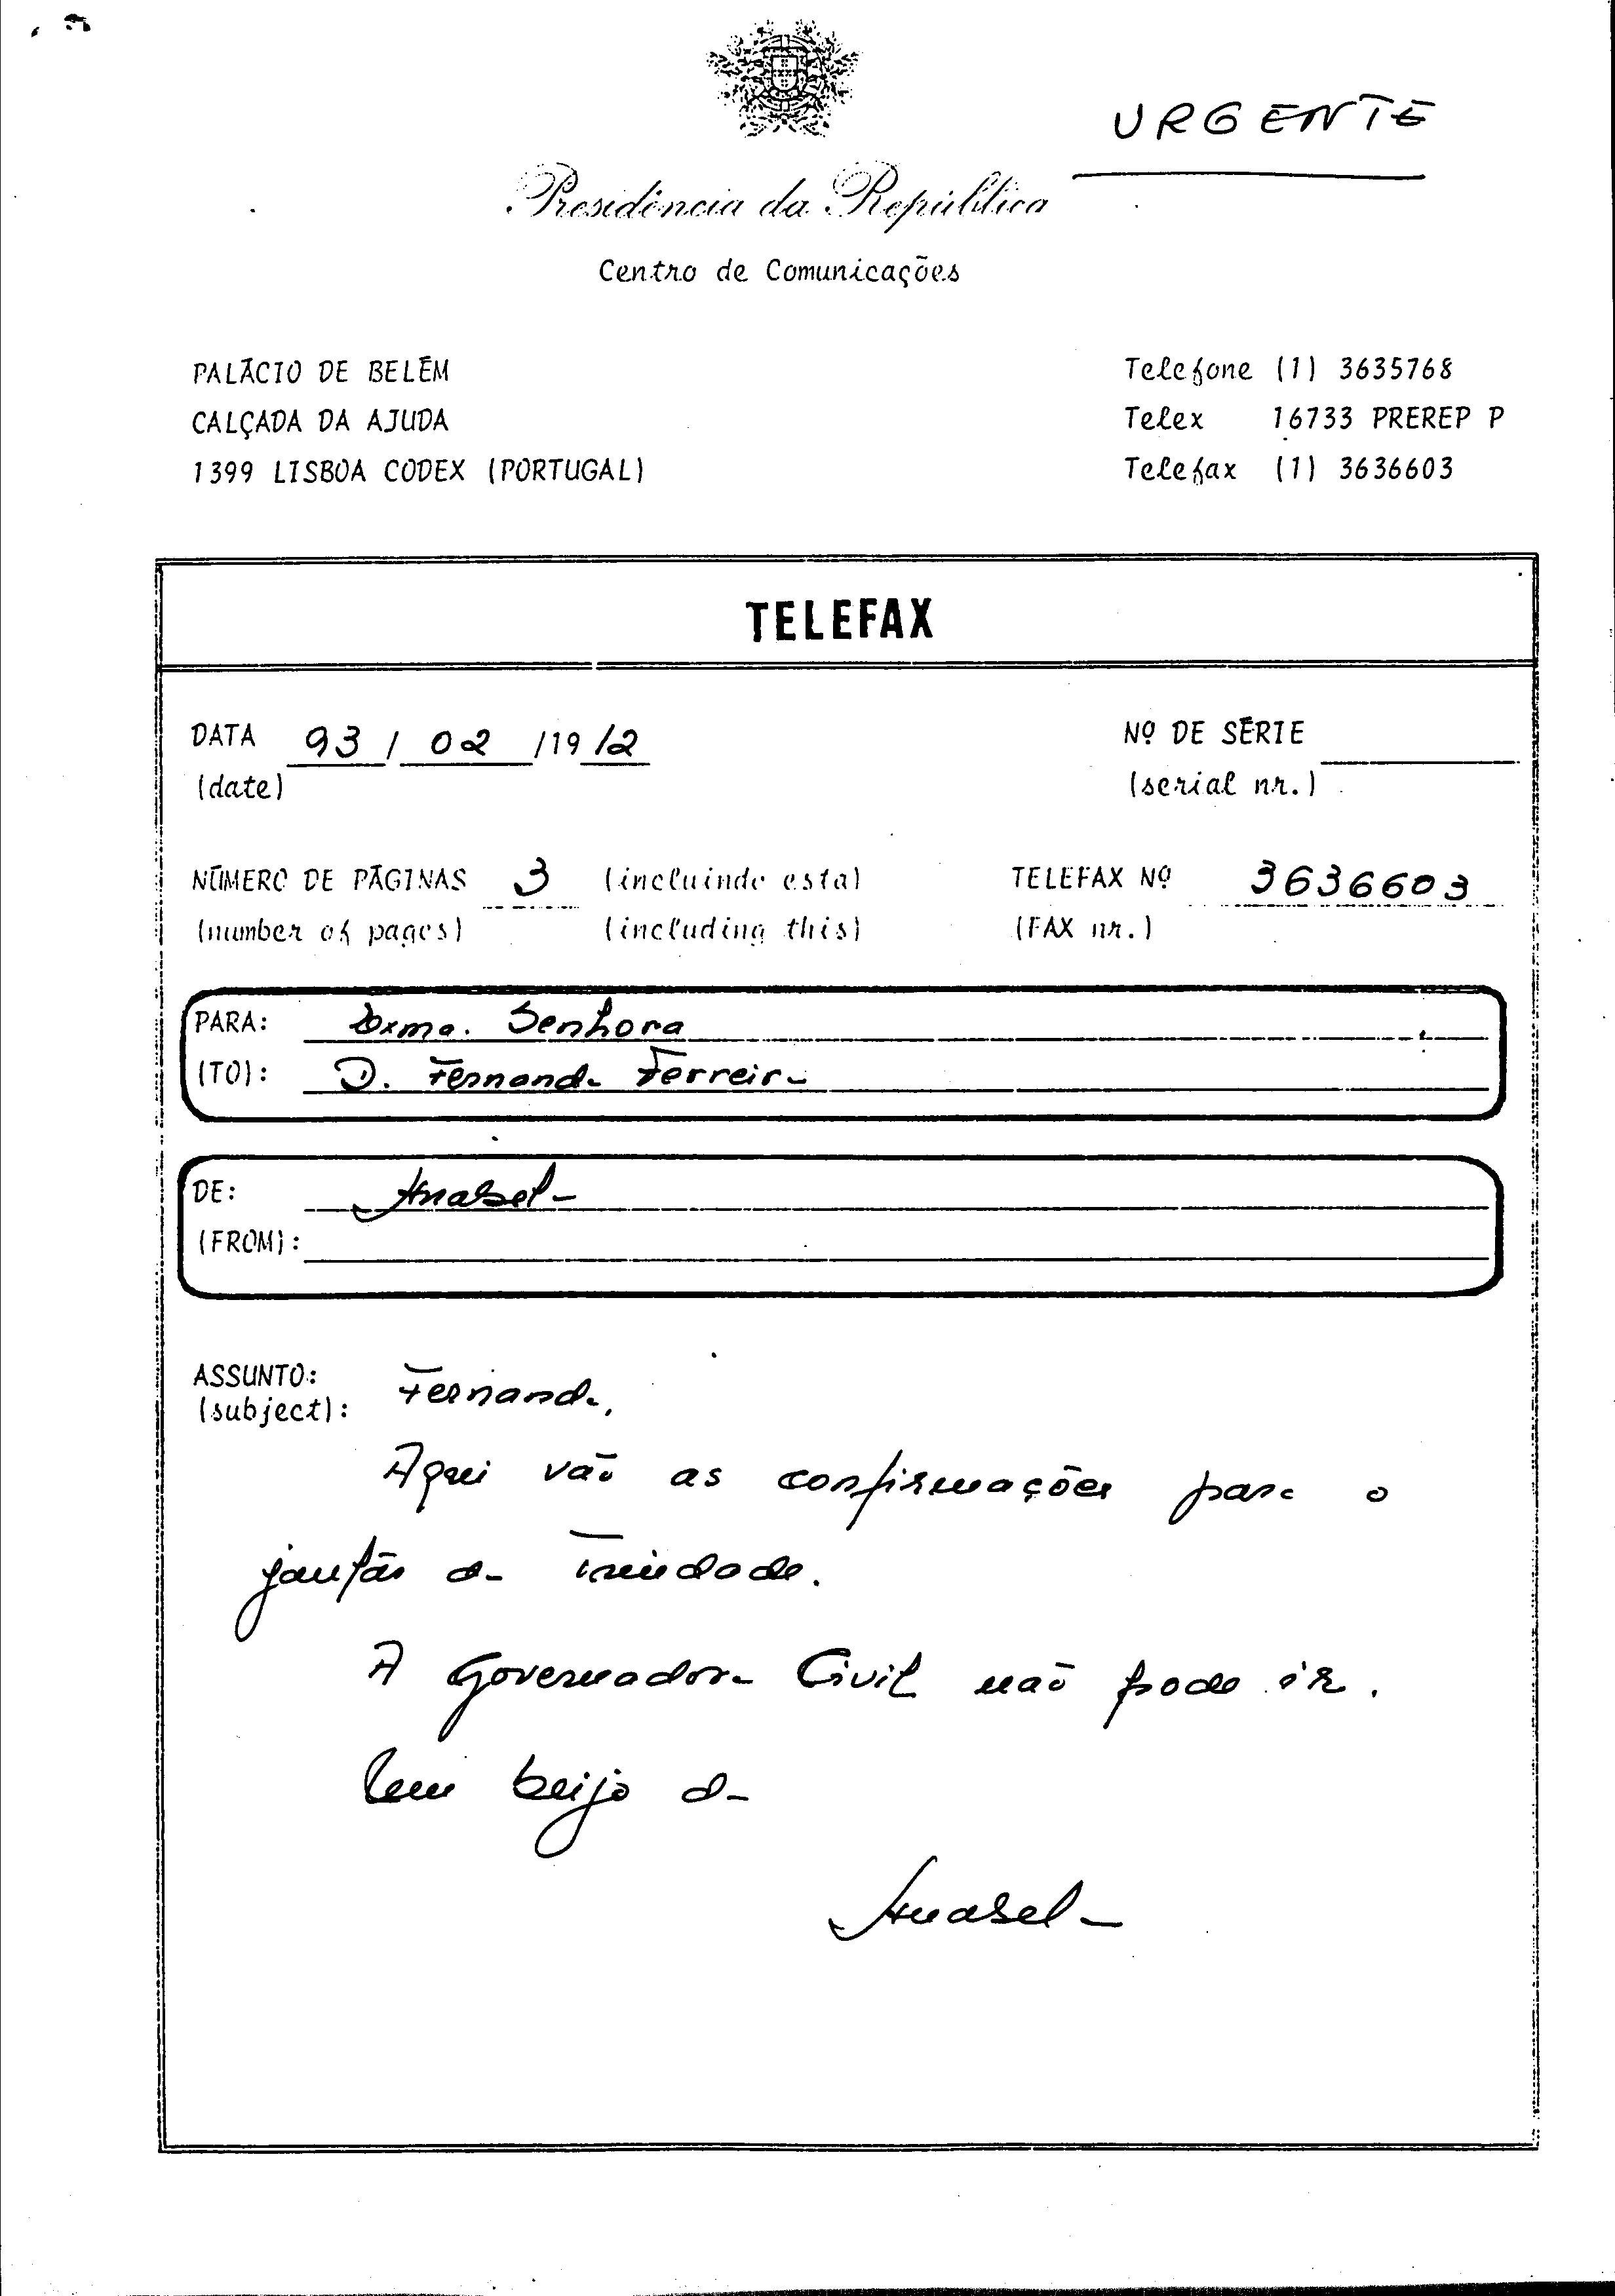 URGENTE
Presidência da República
Centro de Comunicações
PALÁCIO DE BELÉM
CALÇADA DA AJUDA
1399 LISBOA CODEX (PORTUGAL)
Telefone (1) 3635768
Telex 16733 PREREP P
Telefax (1) 3636603
TELEFAX
DATA 93 / 02 /19 12
(date)
Nº DE SÉRIE
(serial nr.)
NÚMERO DE PÁGINAS 3 (incluindo esta)
(number of pages) (including this)
TELEFAX Nº 3636603
(FAX nr.)
PARA: Exma. Senhora
(TO): D. Fernanda Ferreira
DE: Anabela
(FROM):
ASSUNTO: Fernanda,
(subject):
Aqui vão as confirmações para o
jantar da Trindade.
A Governadora Civil não pode ir.
Um beijo da
Anabela